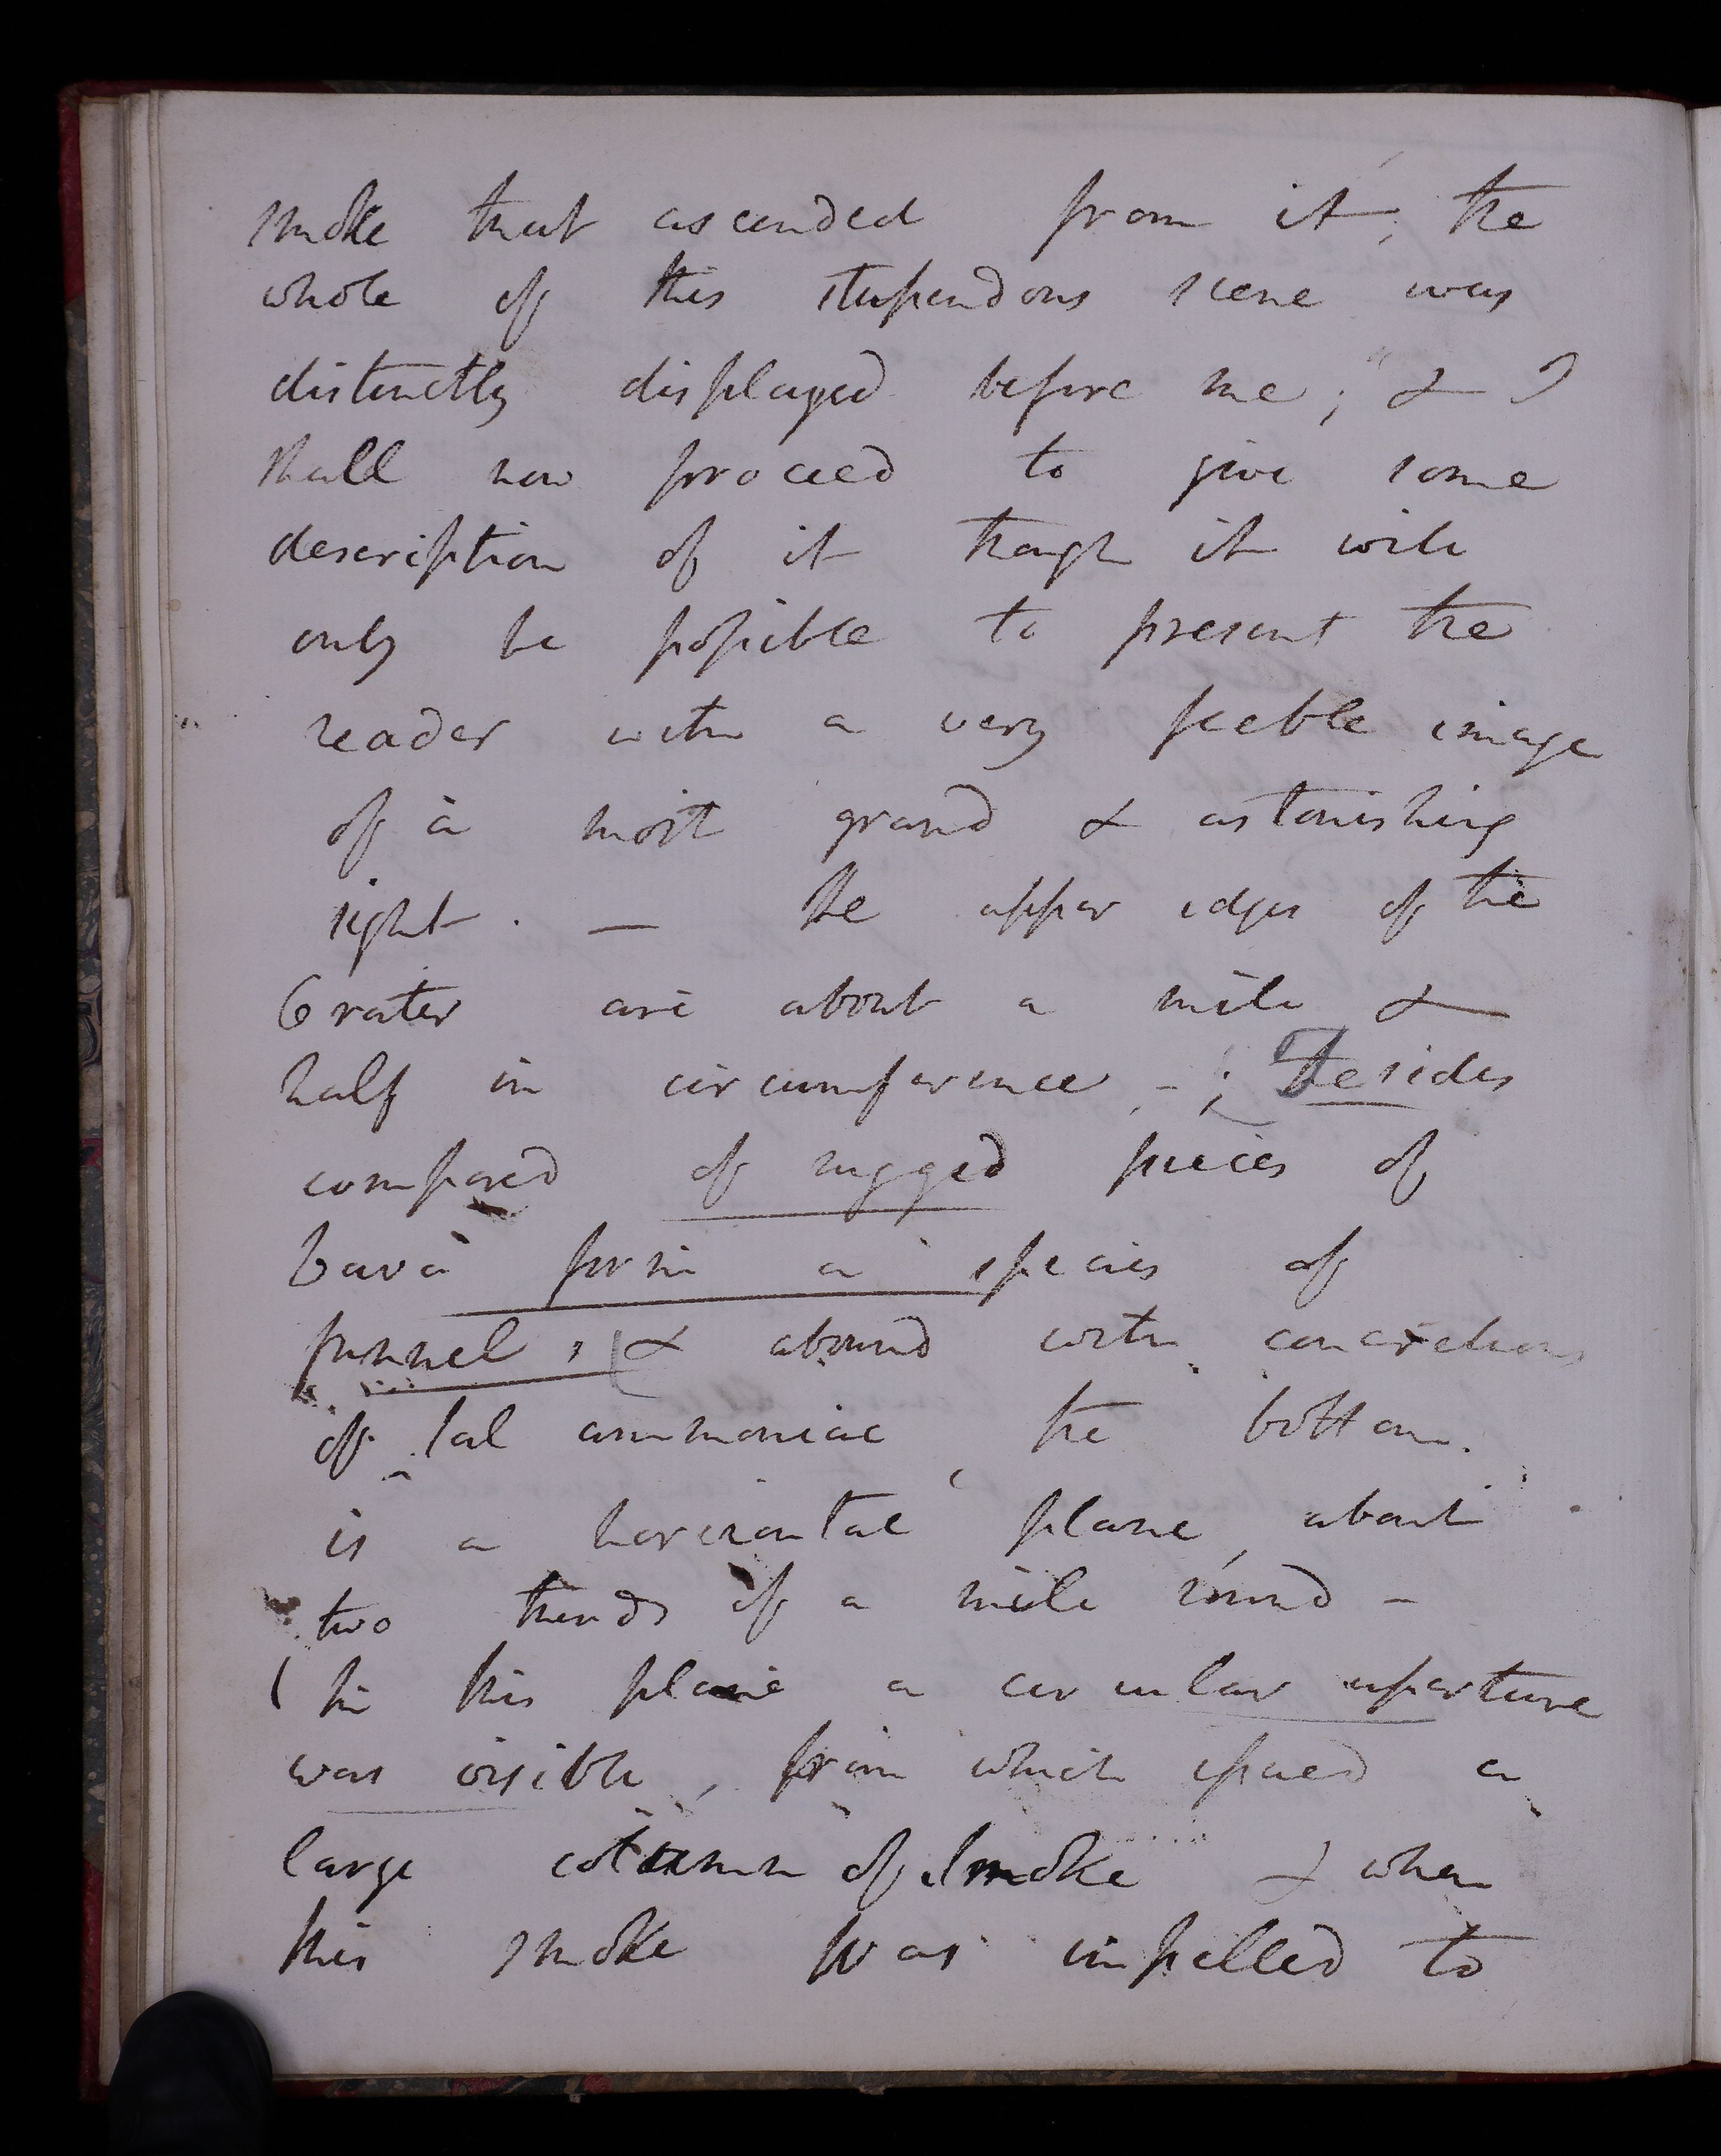 smoke that ascended from it; the
whole of this stupendous scene was
distinctly displayed before me; & I
shall now proceed to give some
description of it though it will
only be possible to present the
reader with a very feeble image
of a most grand & astonishing
sight. — The upper edges of the
Crater are about a mile &
half in circumference, -; The sides
composed of rugged pieces of
Lava form a species of
funnel, & abound with concretions
of Sal ammoniac, the bottom.
is a horizontal plane, about
two thirds of a mile round -
( In this plane a circular aperture
was visible, from which issued a
large column of smoke & when
this smoke was impelled to